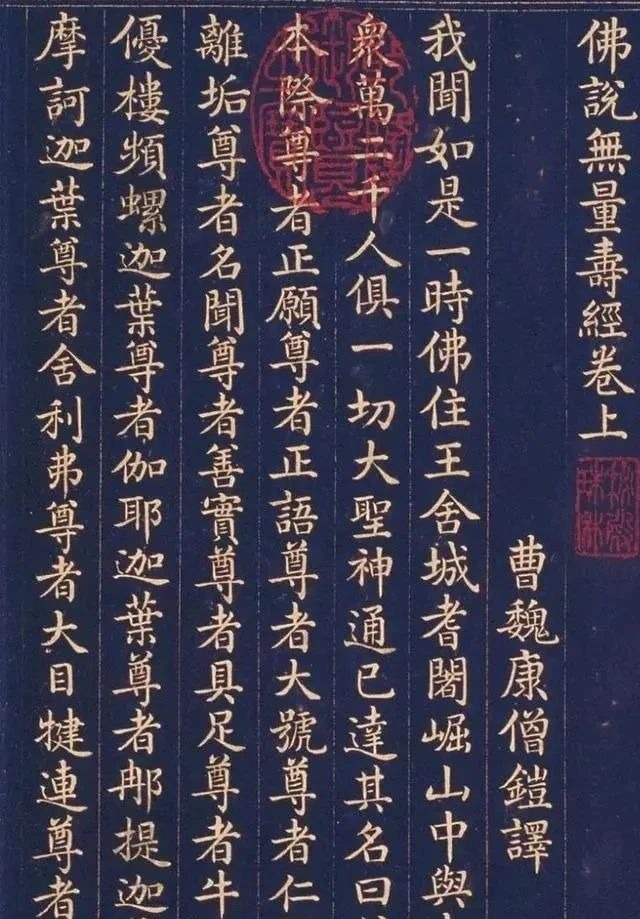 佛說無量壽經卷上
曹魏康僧鎧譯
我聞如是一時佛住王舍城耆闍崛山中與
衆萬二千人俱一切大聖神通已達其名曰
本際尊者正願尊者正語尊者大號尊者仁
離垢尊者名聞尊者善實尊者具足尊者牛
優樓頻螺迦葉尊者伽耶迦葉尊者那提迦
摩訶迦葉尊者舍利弗尊者大目犍連尊者